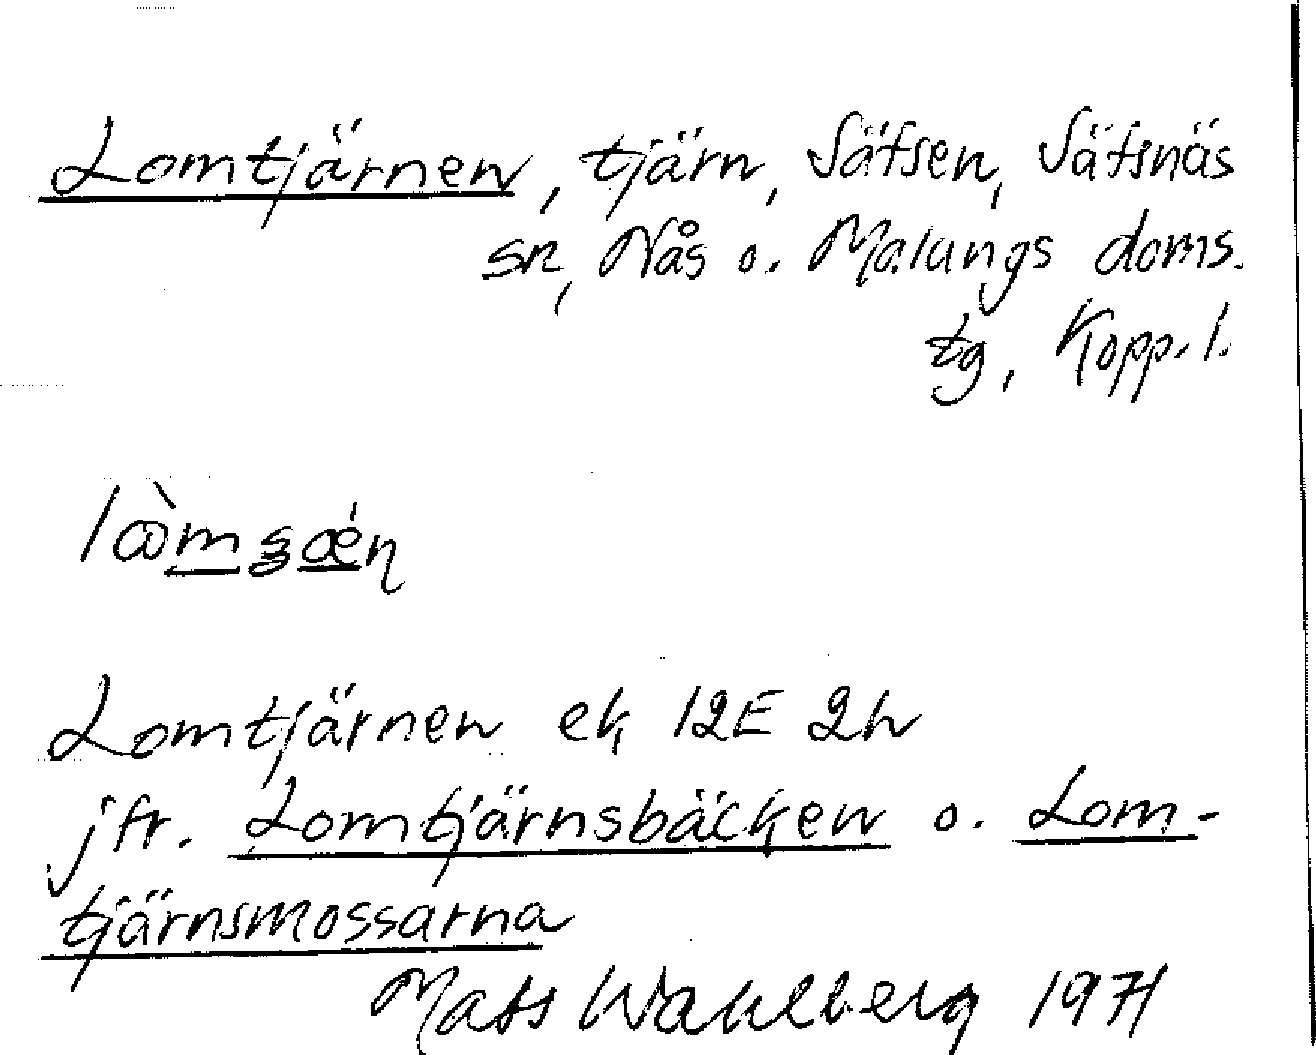 Lomtjärnen, tjärn, Säfsen, Säfsnäs
sn, Nås o. Malungs doms.
tg, Kopp. l.
Lomtjärnen ek 12E 2h
jfr. Lomtjärnsbäcken o. Lom-
tjärnsmossarna
Mats Wahlberg 1971